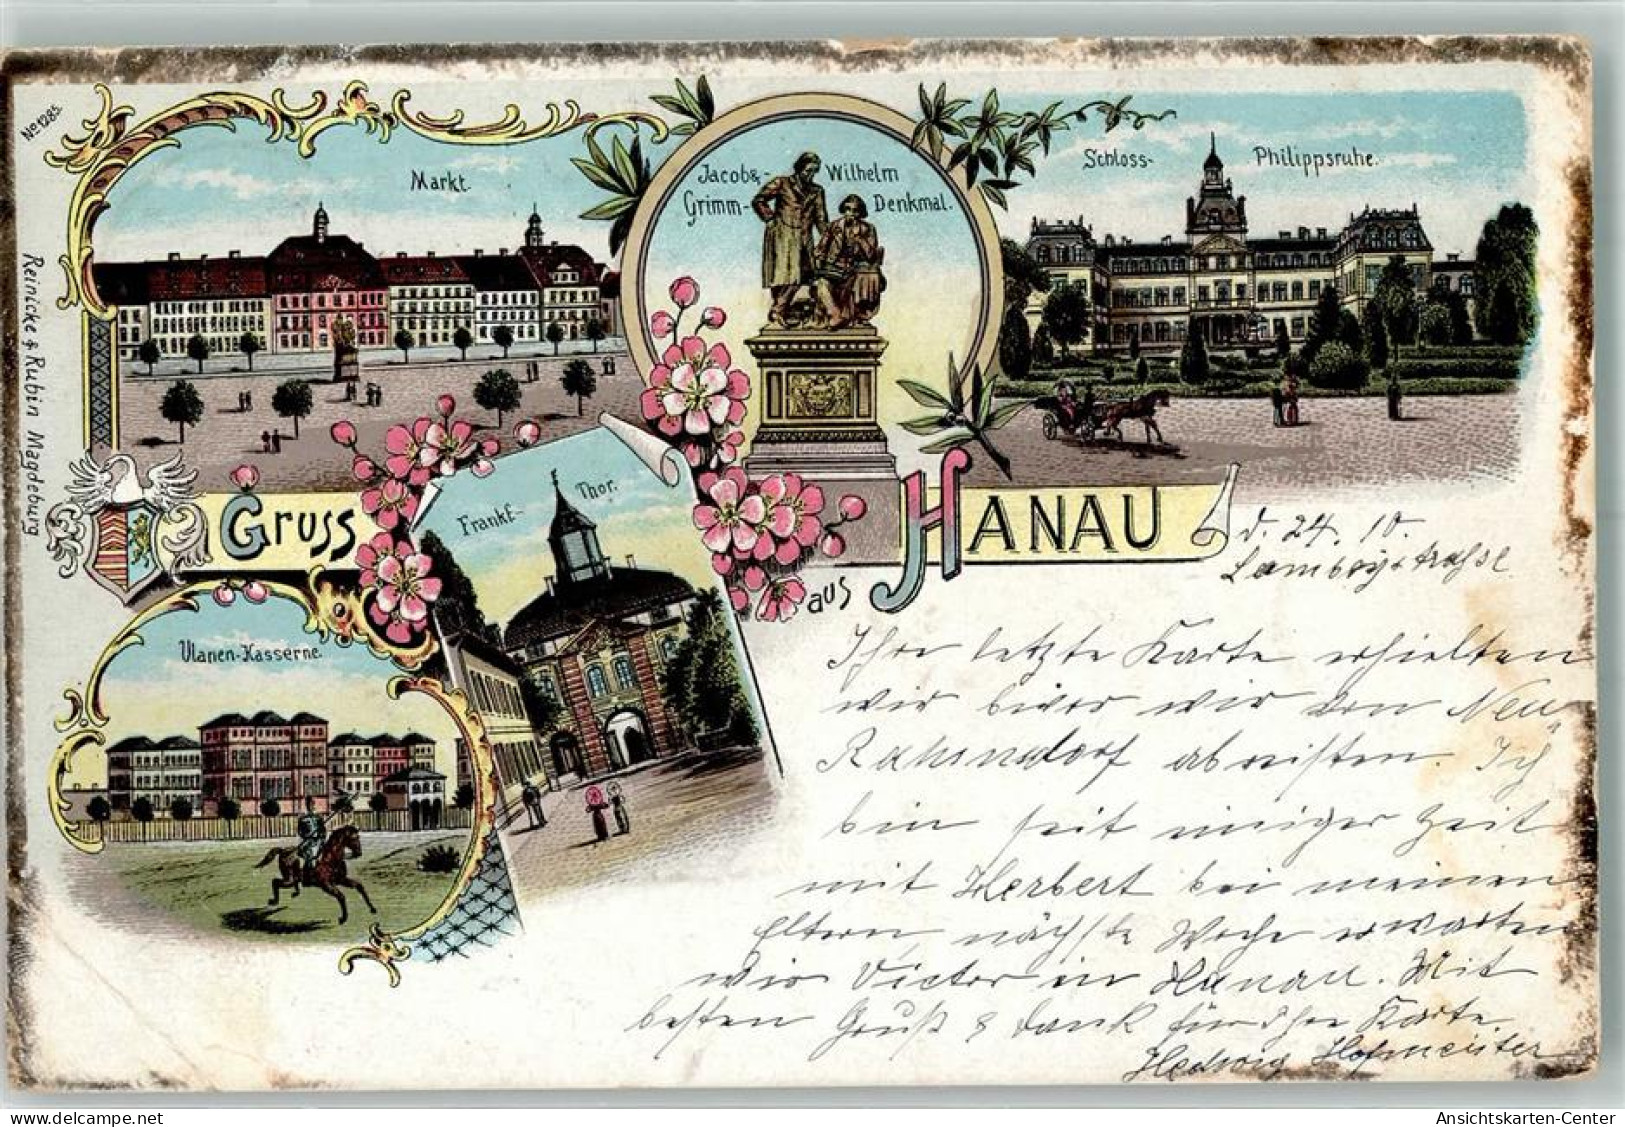 No 1285.
Reinicke & Rubin Magdeburg
Markt.
Jacob & Wilhelm
Grimm-Denkmal.
Schloss-Philippsruhe.
Frankf.-Thor.
Ulanen-Kasserne.
Gruss aus HANAU
d. 24. 10.
Lamboystraße
Ihre letzte Karte erhielten
wir bevor wir von Neu
Rahnsdorf abreisten. Ich
bin seit einiger Zeit
mit Herbert bei meinen
Eltern, nächste Woche erwarten
wir Victor in Hanau. Mit
besten Gruß & Dank für Ihre Karte.
Hedwig Hofmeister
Ansichtskarten-Center